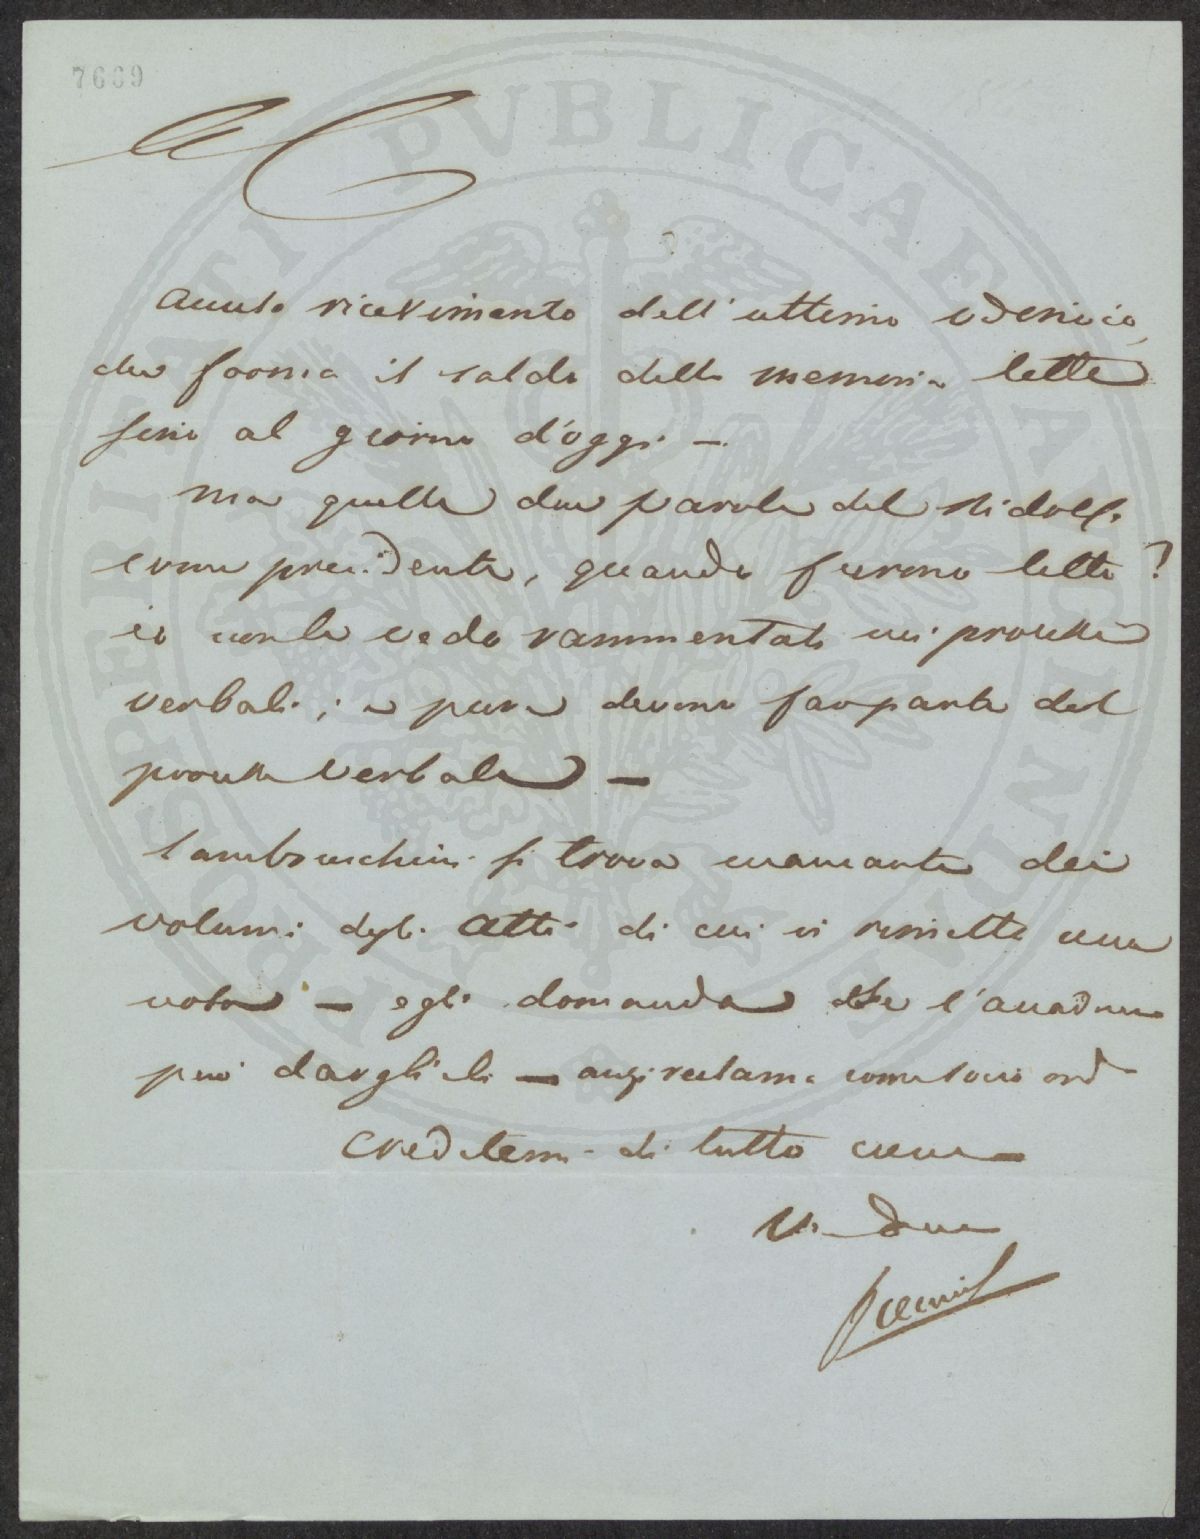 7669
PROSPERITATI PVBLICAE AVGENDAE
A C
Accuso ricevimento dell' ultimo
che forma il saldo delle memorie lette
sino al giorno d'oggi —.
Ma quelle due parole del Ridolfi
come presidente, quando furono lette?
io non le vedo rammentate nei processi
verbali; e pure devono far parte del
processo verbale —
Lambruschini si trova mancante dei
volumi degli Atti di cui vi rimetto una
nota — egli domanda se l'accademia
può darglieli — anzi reclama come socio ord
Credetemi di tutto cuore